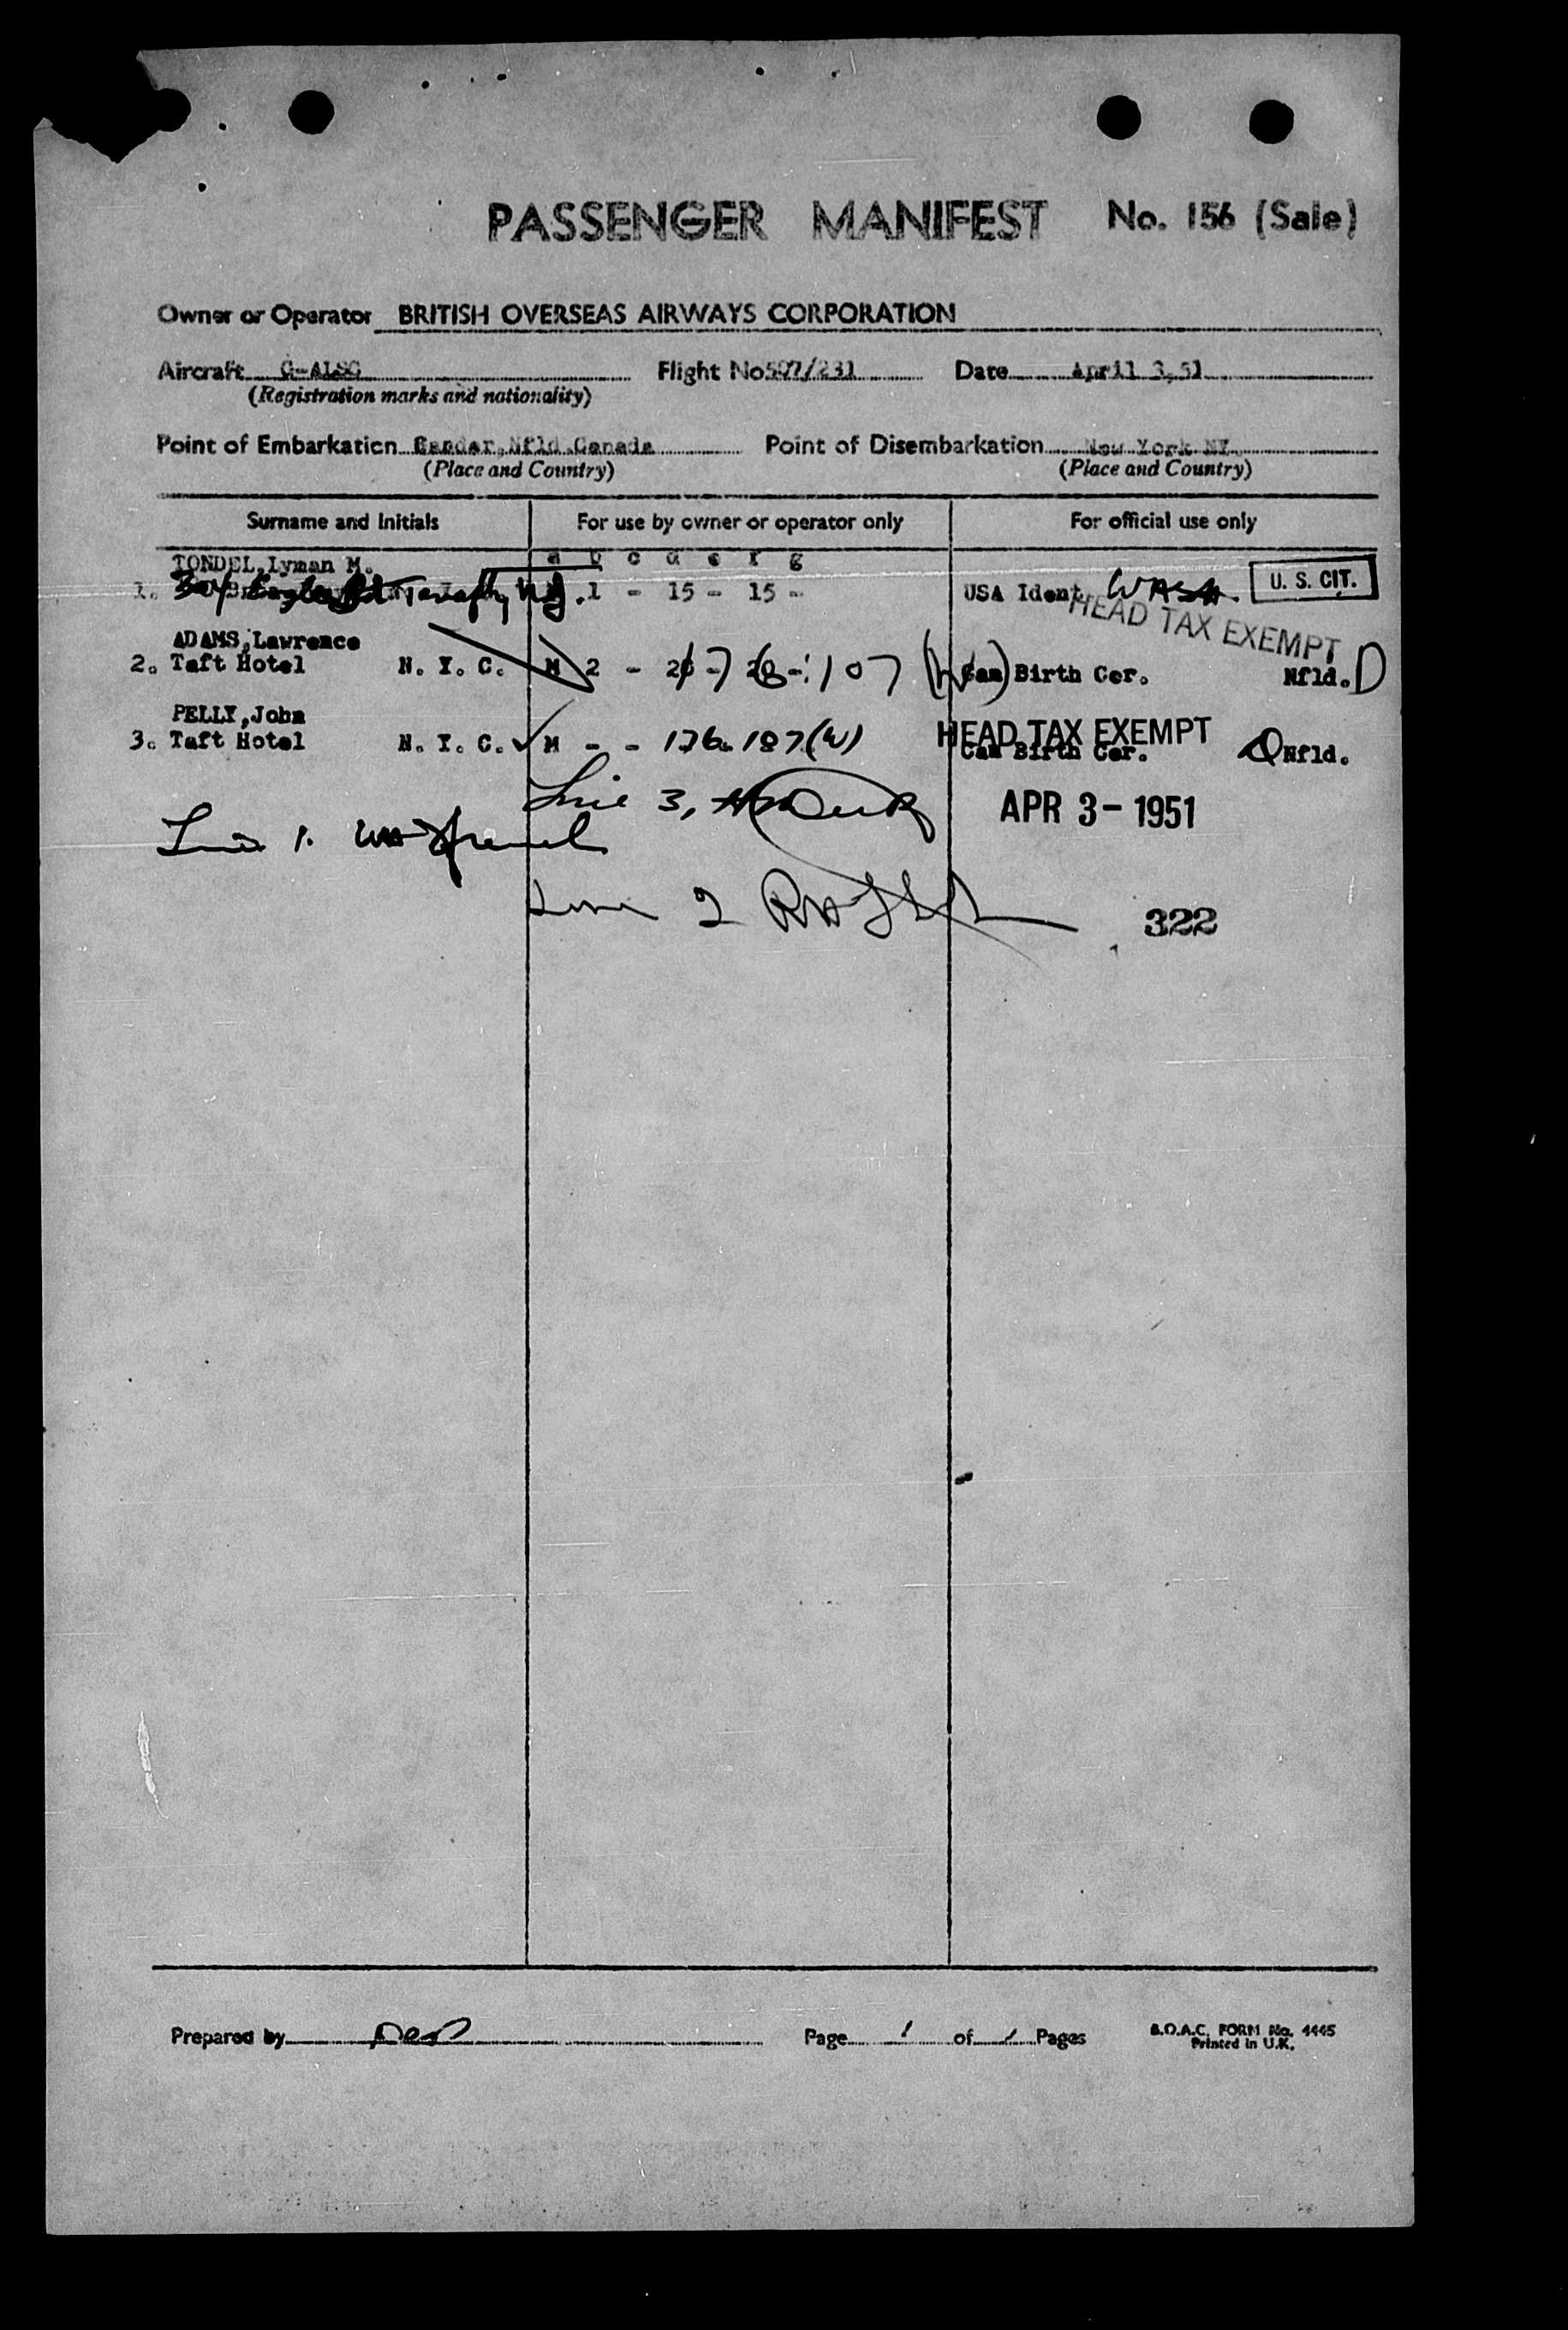 PASSENGER MANIFEST No. 156 (Sale)
Owner or Operator BRITISH OVERSEAS AIRWAYS CORPORATION
Aircraft G-ALSC Flight No 507/231 Date April 3, 51
(Registration marks and nationality)
Point of Embarkation Gander, Nfld. Canada Point of Disembarkation New York NY.
(Place and Country) (Place and Country)
Surname and Initials For use by owner or operator only For official use only
TONDEL, Lyman M. a b c d e f g
1. Tenafly NJ. 1 - 15 - 15 - USA Ident. WASH. U. S. CIT.
HEAD TAX EXEMPT
ADAMS, Lawrence
2. Taft Hotel N. Y. C. M 2 - 107 Can Birth Cer. Nfld. D
PELLY, John
3. Taft Hotel N. Y. C. M - - 176. 187 (W) Can Birth Cer. Nfld.
HEAD TAX EXEMPT
Line 3,
APR 3 - 1951
Line 1.
Line 2
322
Prepared by Page 1 of 1 Pages B.O.A.C. FORM No. 4445
Printed in U.K.